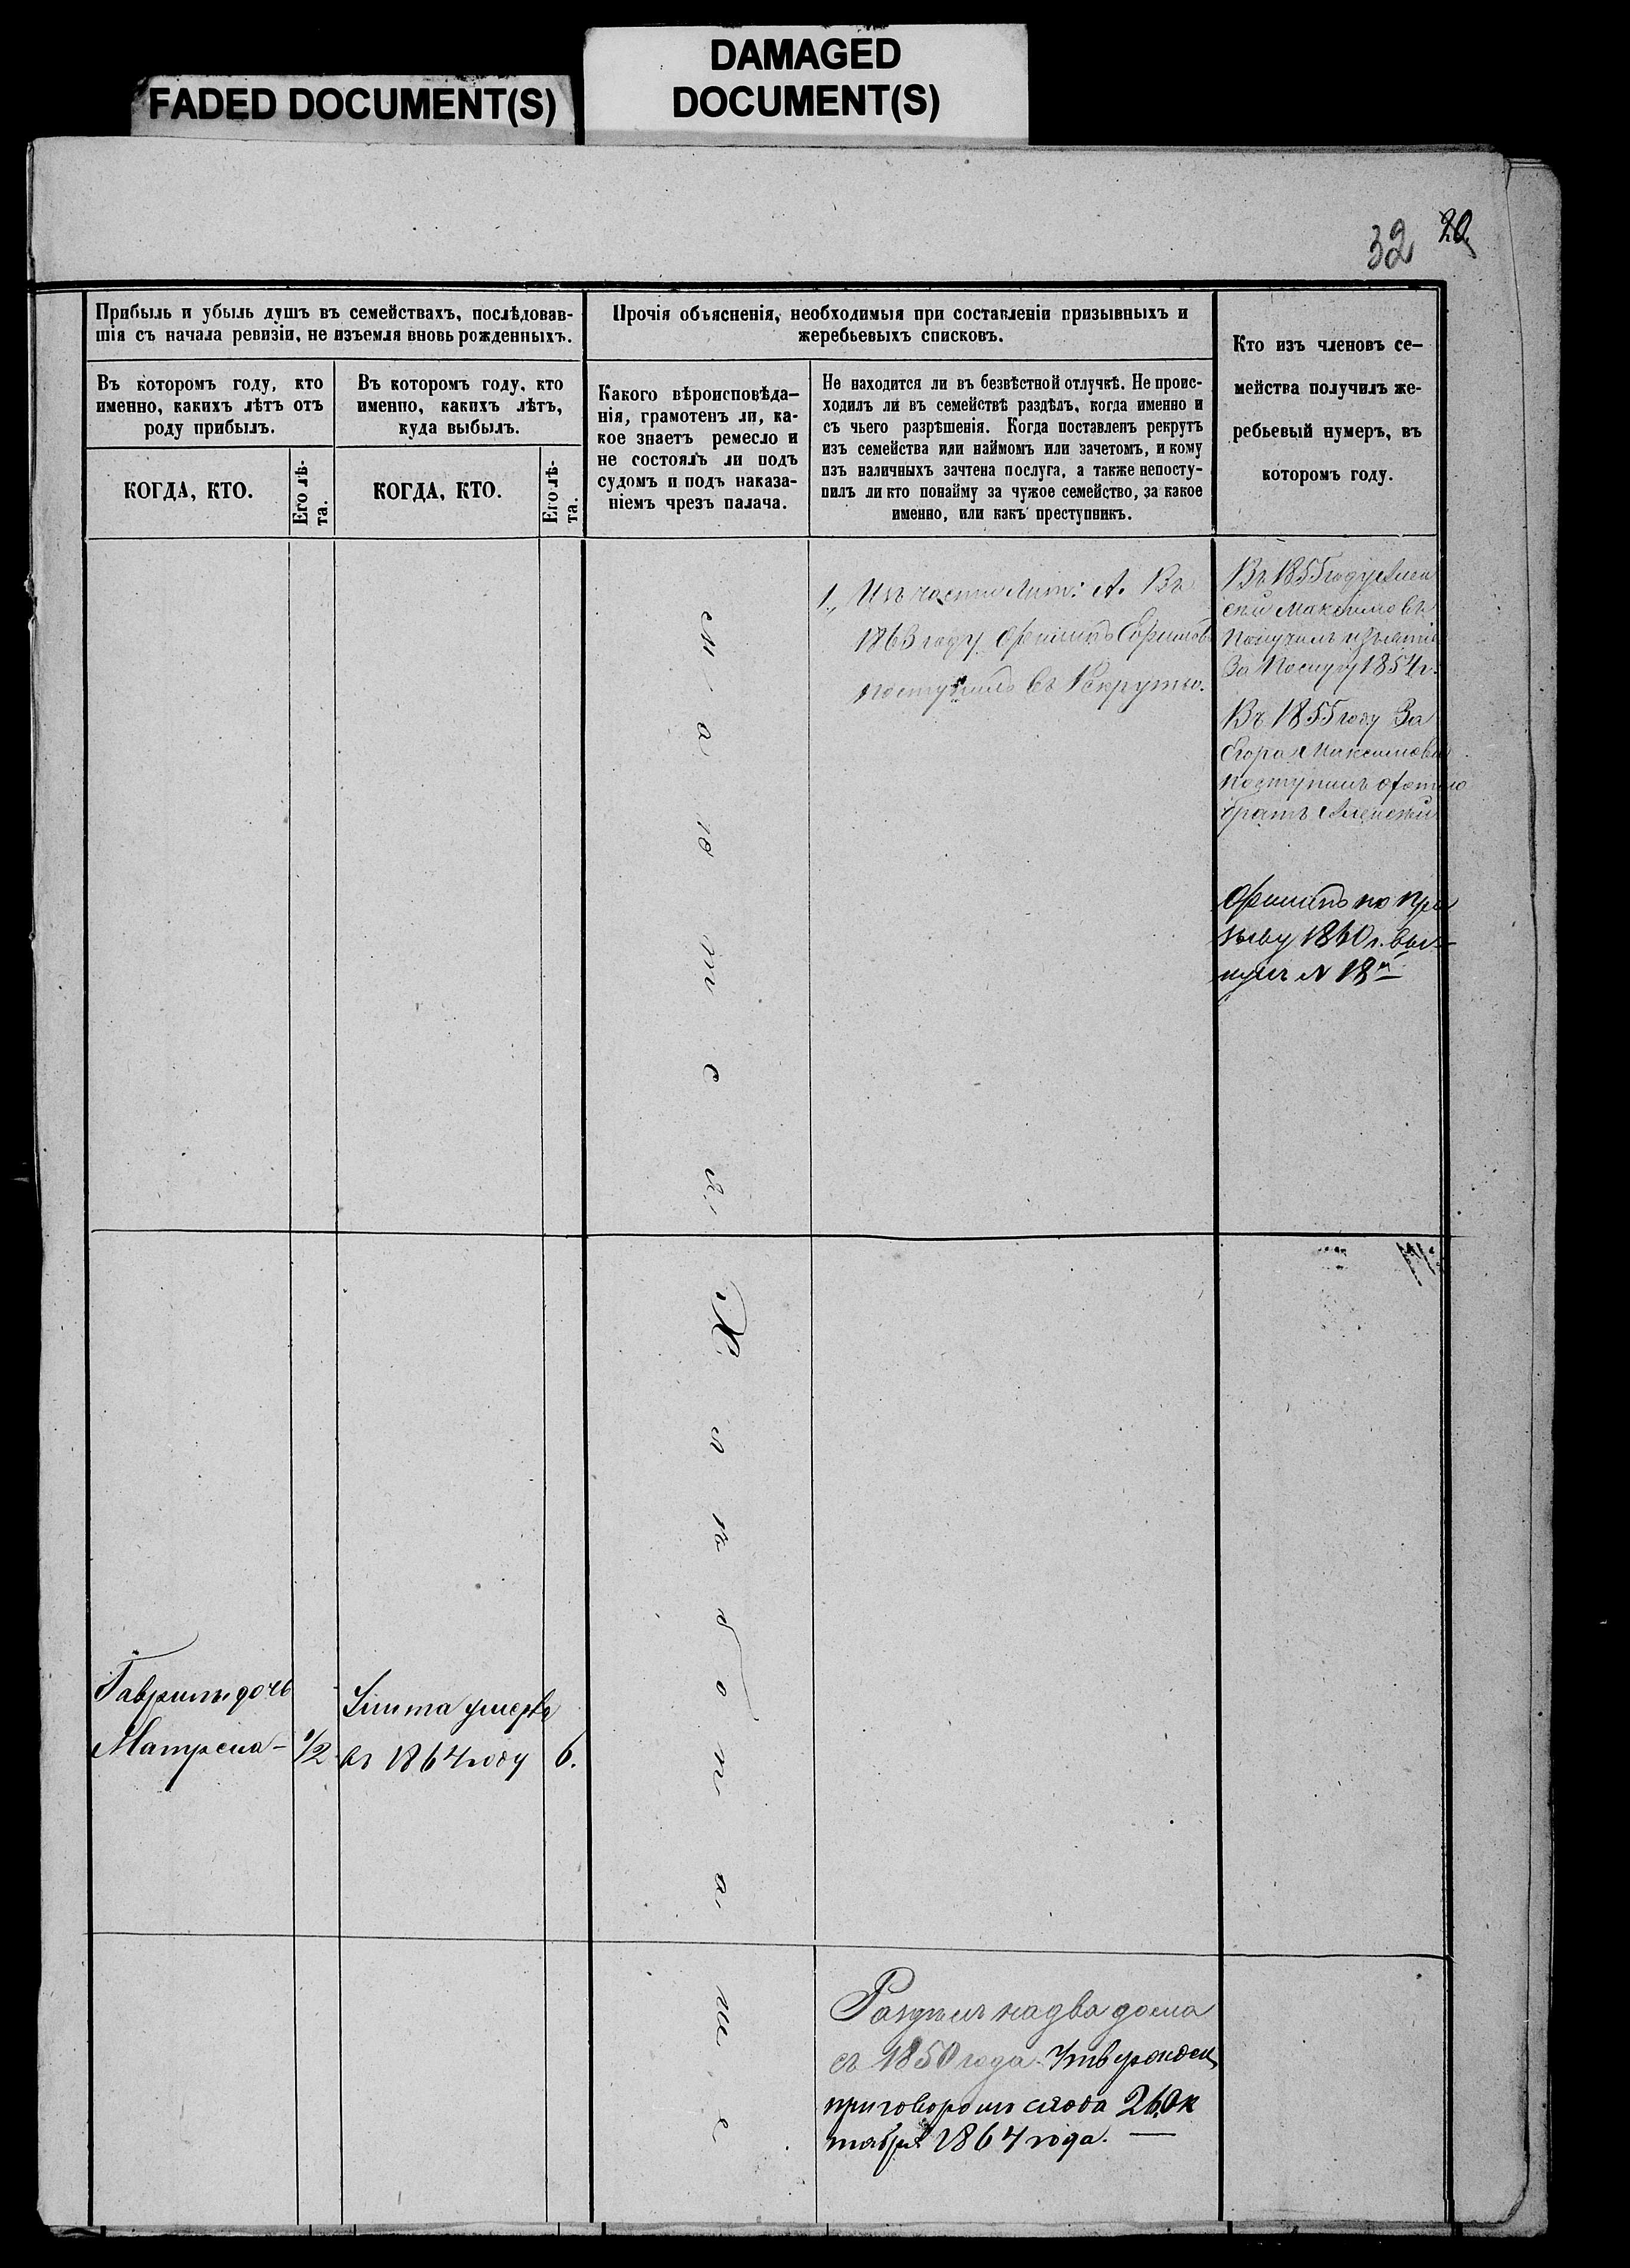 FADED DOCUMENT(S)
DAMAGED
DOCUMENT(S)
32 20
Прибыль и убыль душъ въ семействахъ, послѣдовав-
шія съ начала ревизіи, не изъемля вновь рожденныхъ.
Въ которомъ году, кто
именно, какихъ лѣтъ отъ
роду прибылъ.
КОГДА, КТО.
Его лѣ-
та.
Въ которомъ году, кто
именно, какихъ лѣтъ,
куда выбылъ.
КОГДА, КТО.
Его лѣ-
та.
Прочія объясненія, необходимыя при составленіи призывныхъ и
жеребьевыхъ списковъ.
Какого вѣроисповѣда-
нія, грамотенъ ли, ка-
кое знаетъ ремесло и
не состоялъ ли подъ
судомъ и подъ наказа-
ніемъ чрезъ палача.
Не находится ли въ безвѣстной отлучкѣ. Не проис-
ходилъ ли въ семействѣ раздѣлъ, когда именно и
съ чьего разрѣшенія. Когда поставленъ рекрутъ
изъ семейства или наймомъ или зачетомъ, и кому
изъ наличныхъ зачтена послуга, а также непосту-
пилъ ли кто понайму за чужое семейство, за какое
именно, или какъ преступникъ.
Кто изъ членовъ се-
мейства получилъ же-
ребьевый нумеръ, въ
которомъ году.
1., Изъ части Лит: А. Въ
1863 году Филипъ Ефимовъ
поступилъ въ Рекруты.
Въ 1855 году Алек
сѣй Максимовъ
Получилъ изъятіе
За Послугу 1854 г.
Въ 1855 году За
Егора Максимова
поступилъ охотою
братъ Алексѣй
Филипъ по при
зыву 1860 г. вы-
нулъ N 18й
Гаврилы дочь
Матрена - 1/2
умерла
въ 1864 году 6.
Раздѣлъ на два дома
съ 1850 года. Утвержденъ
приговоромъ схода 26 Ок
тября 1864 года. —